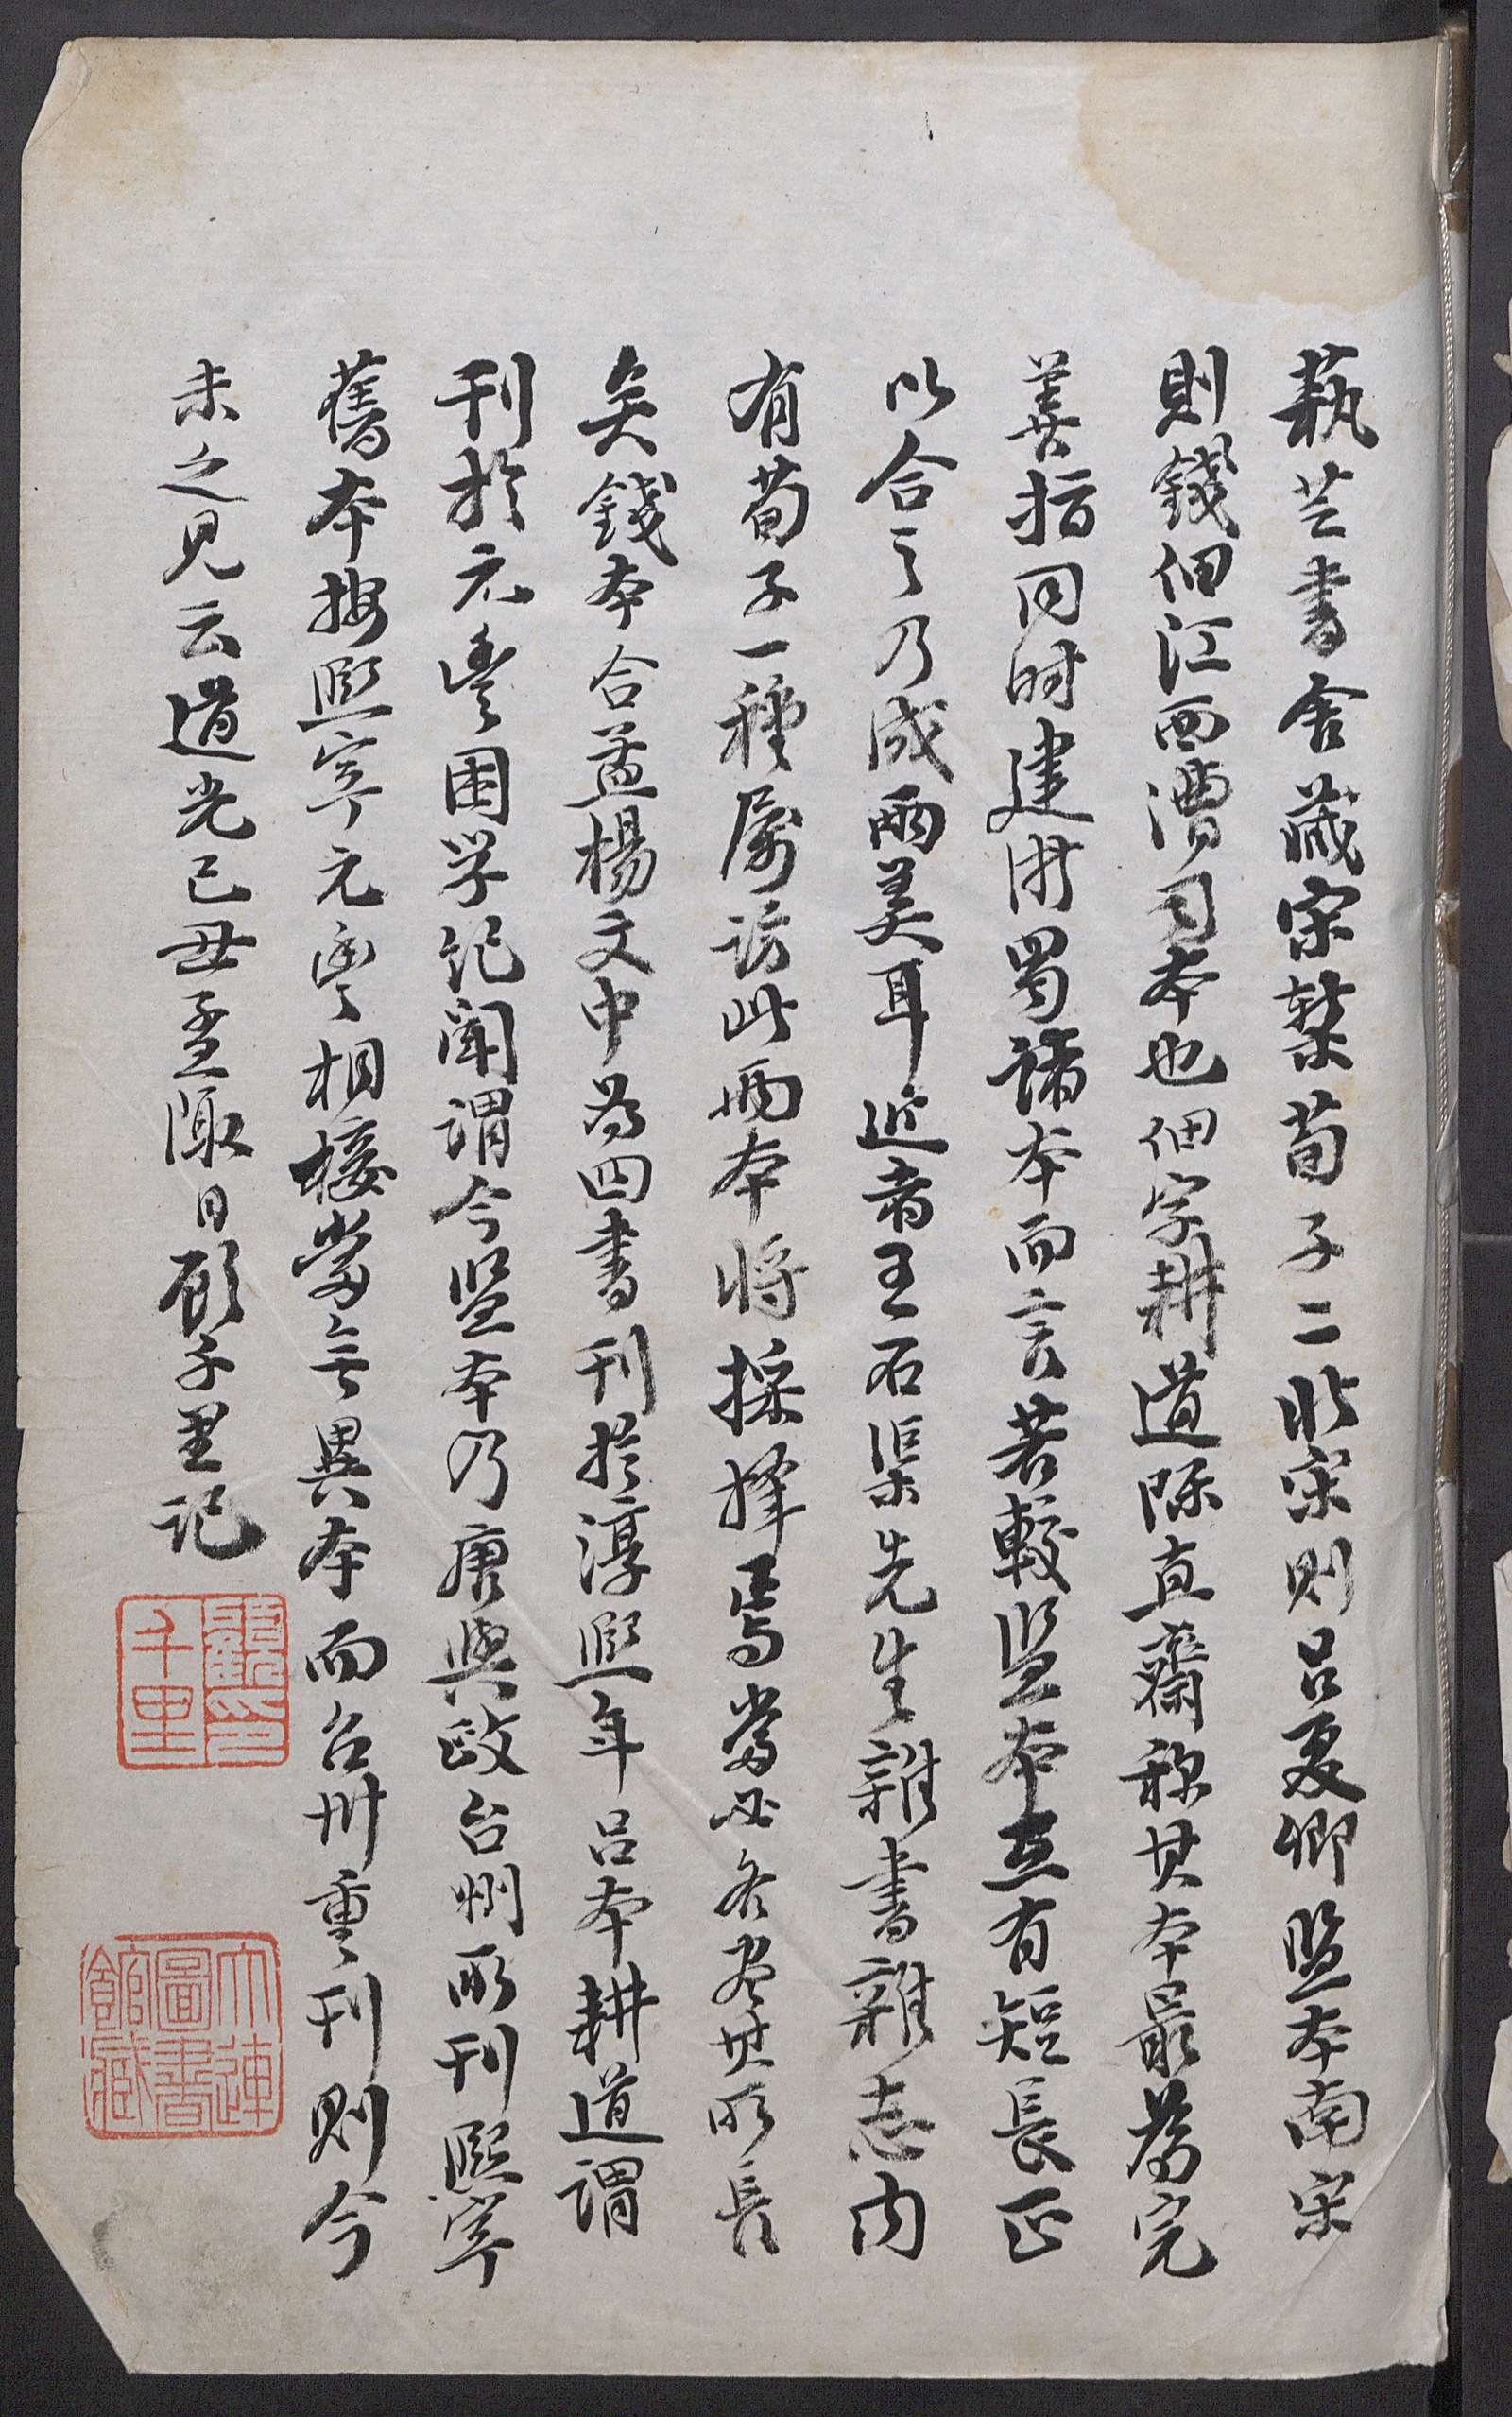 蓺芸書舍藏宋槧荀子二北宋則呂夏卿監本南宋
則錢佃江西漕司本也佃字耕道陳直齋称其本最為完
善指同时建浙蜀諸本而言若較監本互有短長正
以合之乃成兩美耳近者王石渠先生雜書雜志內
有荀子一種屬訪此兩本將採擇焉當必各盡其所長
矣錢本合孟楊文中為四書刊於淳熙年呂本耕道謂
刊於元豐困学記聞謂今監本乃唐與政台州所刊熙寧
舊本按熙寧元豐相接當無異本而台州重刊則今
未之見云道光己丑孟陬日顧千里記
顧印
千里
大連
圖書
館藏